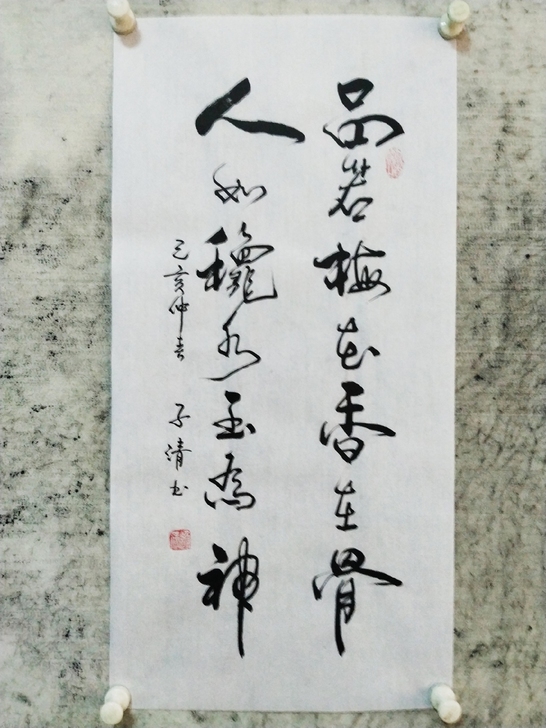 品若梅花香在骨
人如龝水玉為神
己亥仲春 子清书